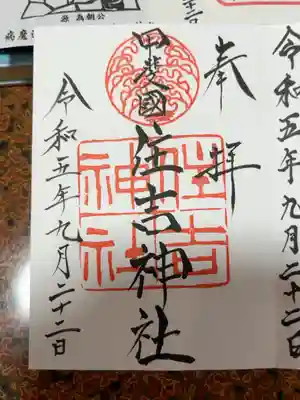 奉拝
甲斐國
住吉神社
住吉
神社
令和五年九月二十二日
令和五年九月二十二日